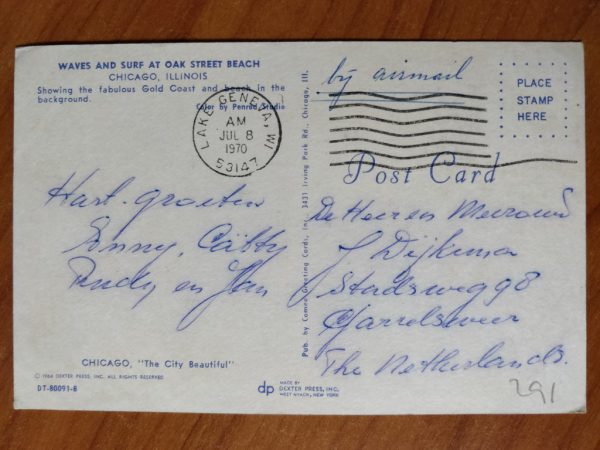 WAVES AND SURF AT OAK STREET BEACH
CHICAGO, ILLINOIS
Showing the fabulous Gold Coast and beach in the
background.
Color by Penrod Studio
LAKE GENEVA, WI
AM
JUL 8
1970
53147
by airmail
PLACE
STAMP
HERE
Post Card
Hart. groeten
Sonny, Cathy
Rudy en Jan
De Heer en Mevrouw
J Dijkema
Stadsweg 98
Garrelsweer
The Netherlands.
291
Pub. by Cameo Greeting Cards, Inc. 3431 Irving Park Rd., Chicago, Ill.
CHICAGO, "The City Beautiful"
© 1964 DEXTER PRESS, INC. ALL RIGHTS RESERVED
DT-80091-B
dp
MADE BY
DEXTER PRESS, INC.
WEST NYACK, NEW YORK